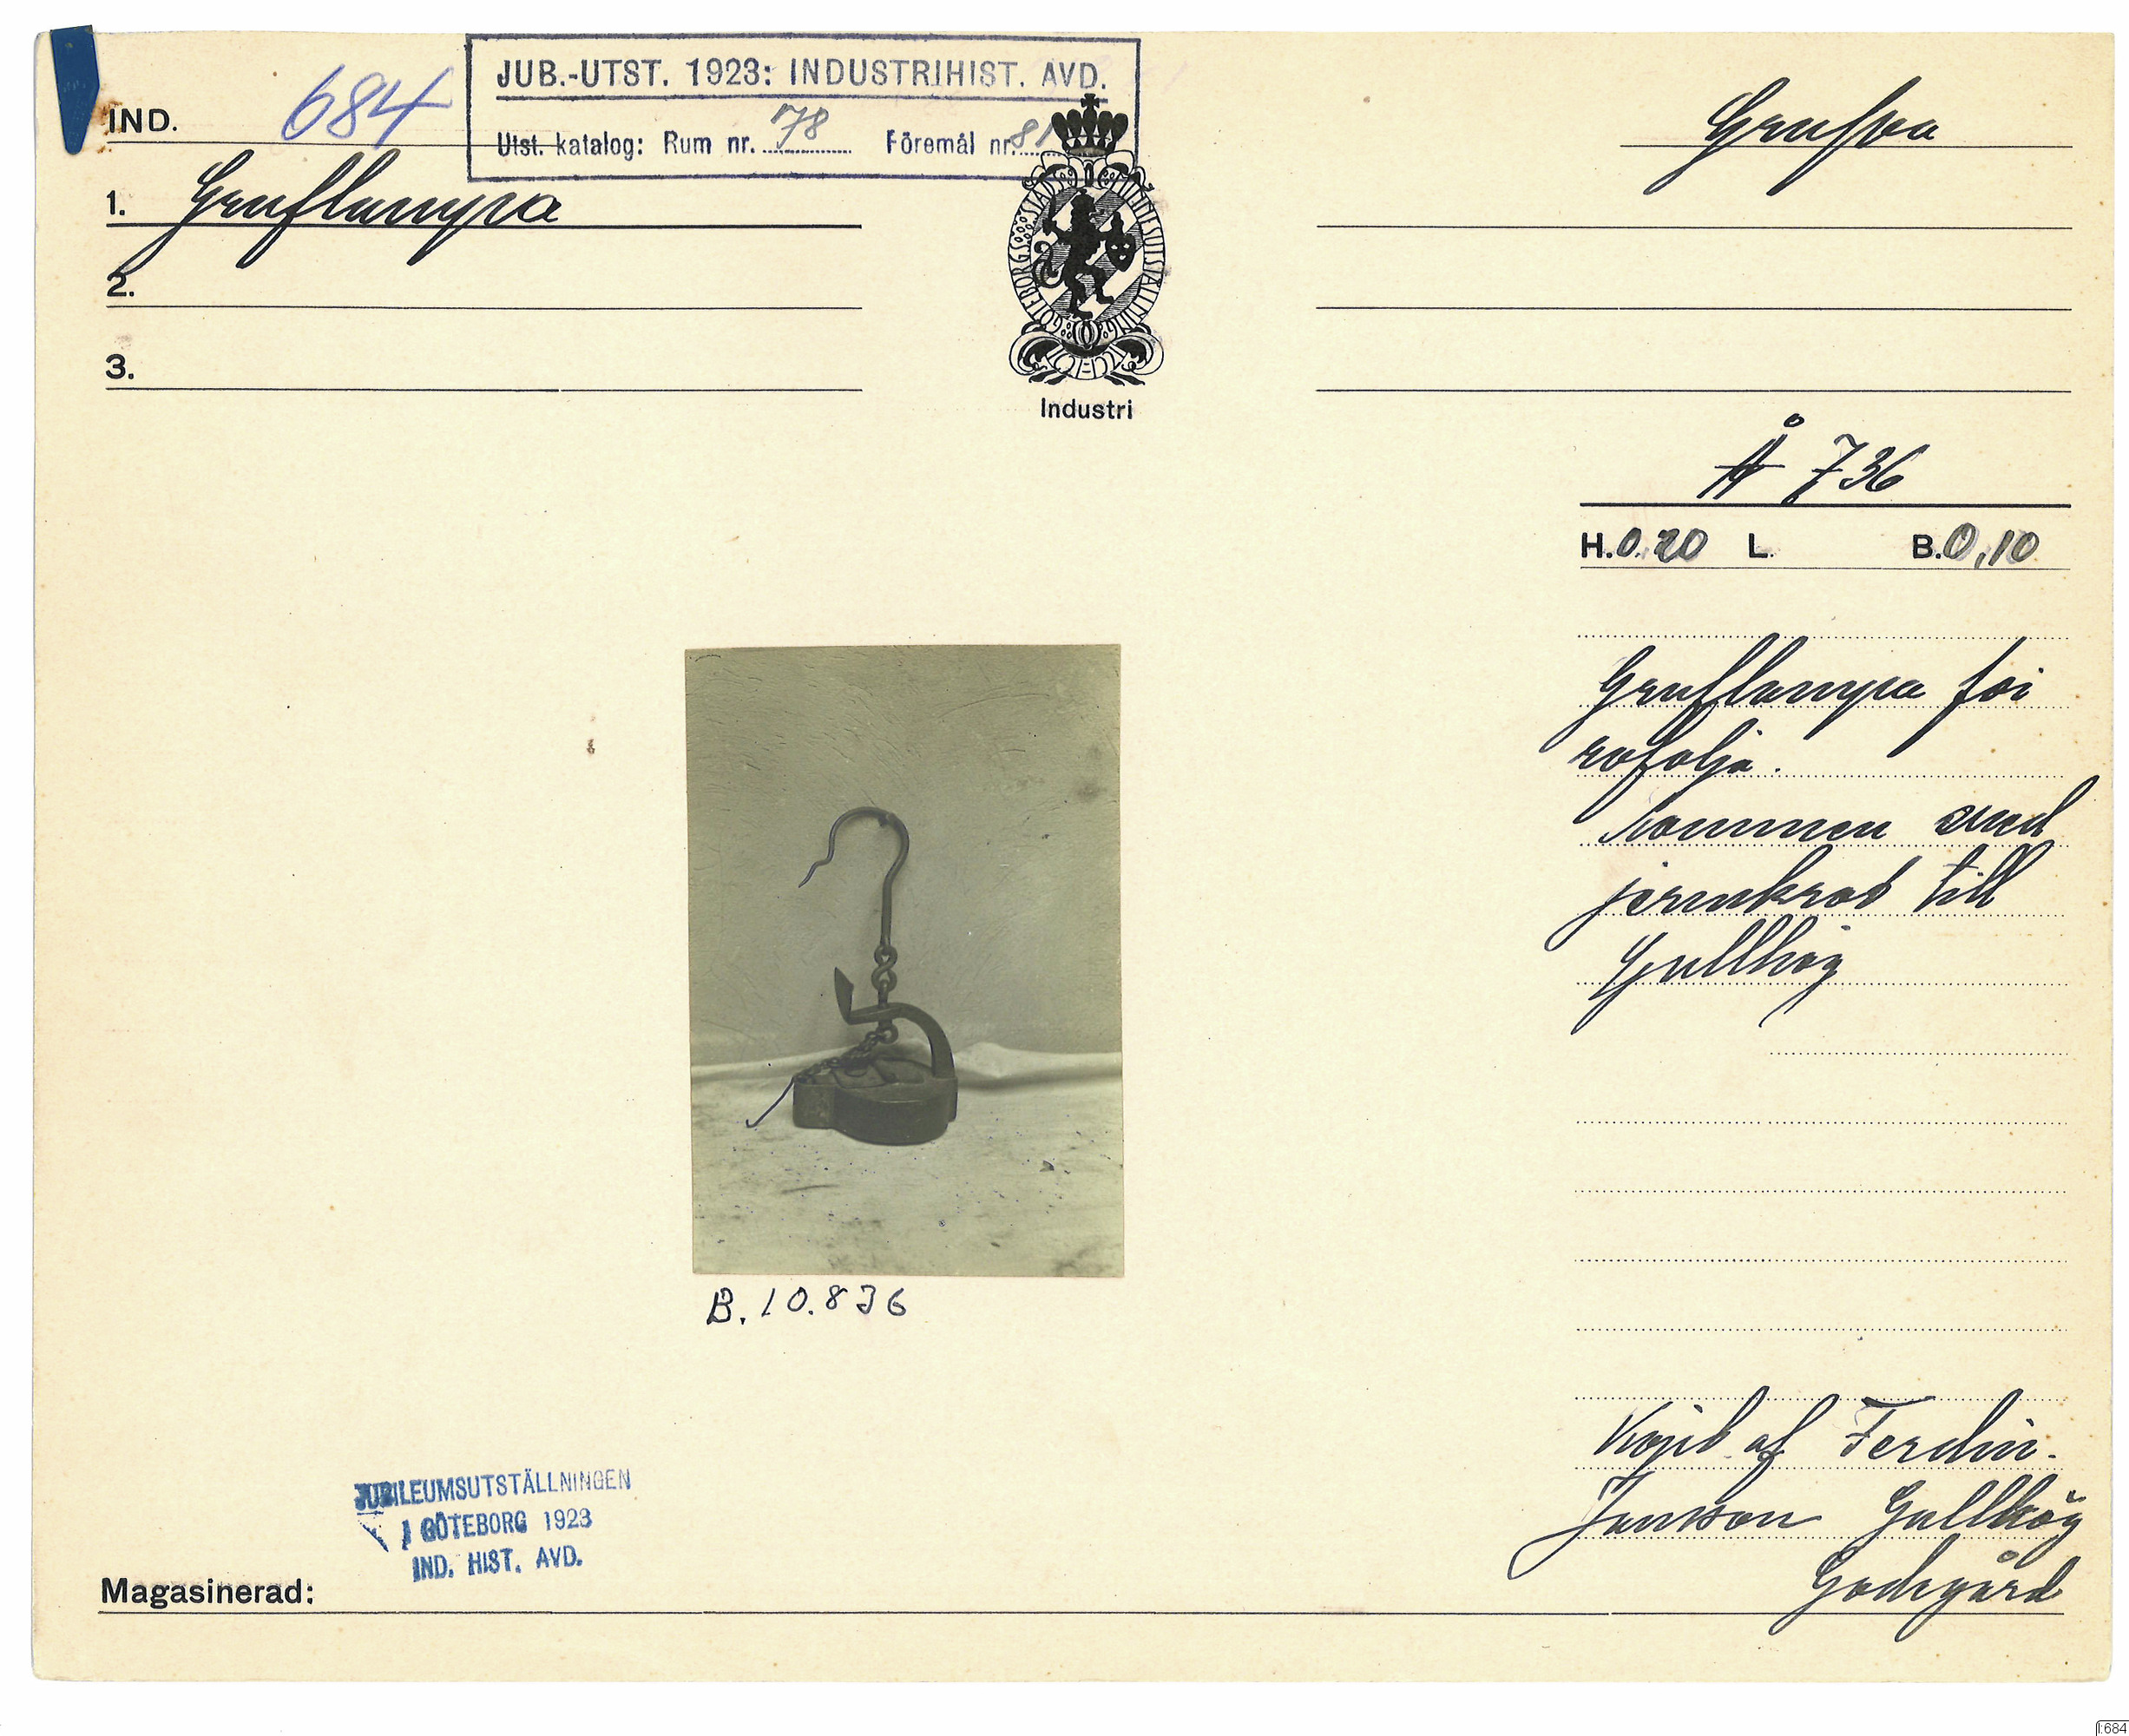 JUB.-UTST. 1923: INDUSTRIHIST. AVD.
IND. 684
Utst. katalog: Rum nr. 78 Föremål nr. 81
Grufva
1. Gruflampa
2.
3.
GÖTEBORGS STADS MINNESUTSTÄLLNING
Industri
Å 736
H. 0.20 L. B. 0,10
Gruflampa för
rofolja.
kommen med
till
Gullhög
B. 10.836
Köpt af Ferdin.
Jansson Gullhög
Godegård
JUBILEUMSUTSTÄLLNINGEN
I GÖTEBORG 1923
IND. HIST. AVD.
Magasinerad:
I:684